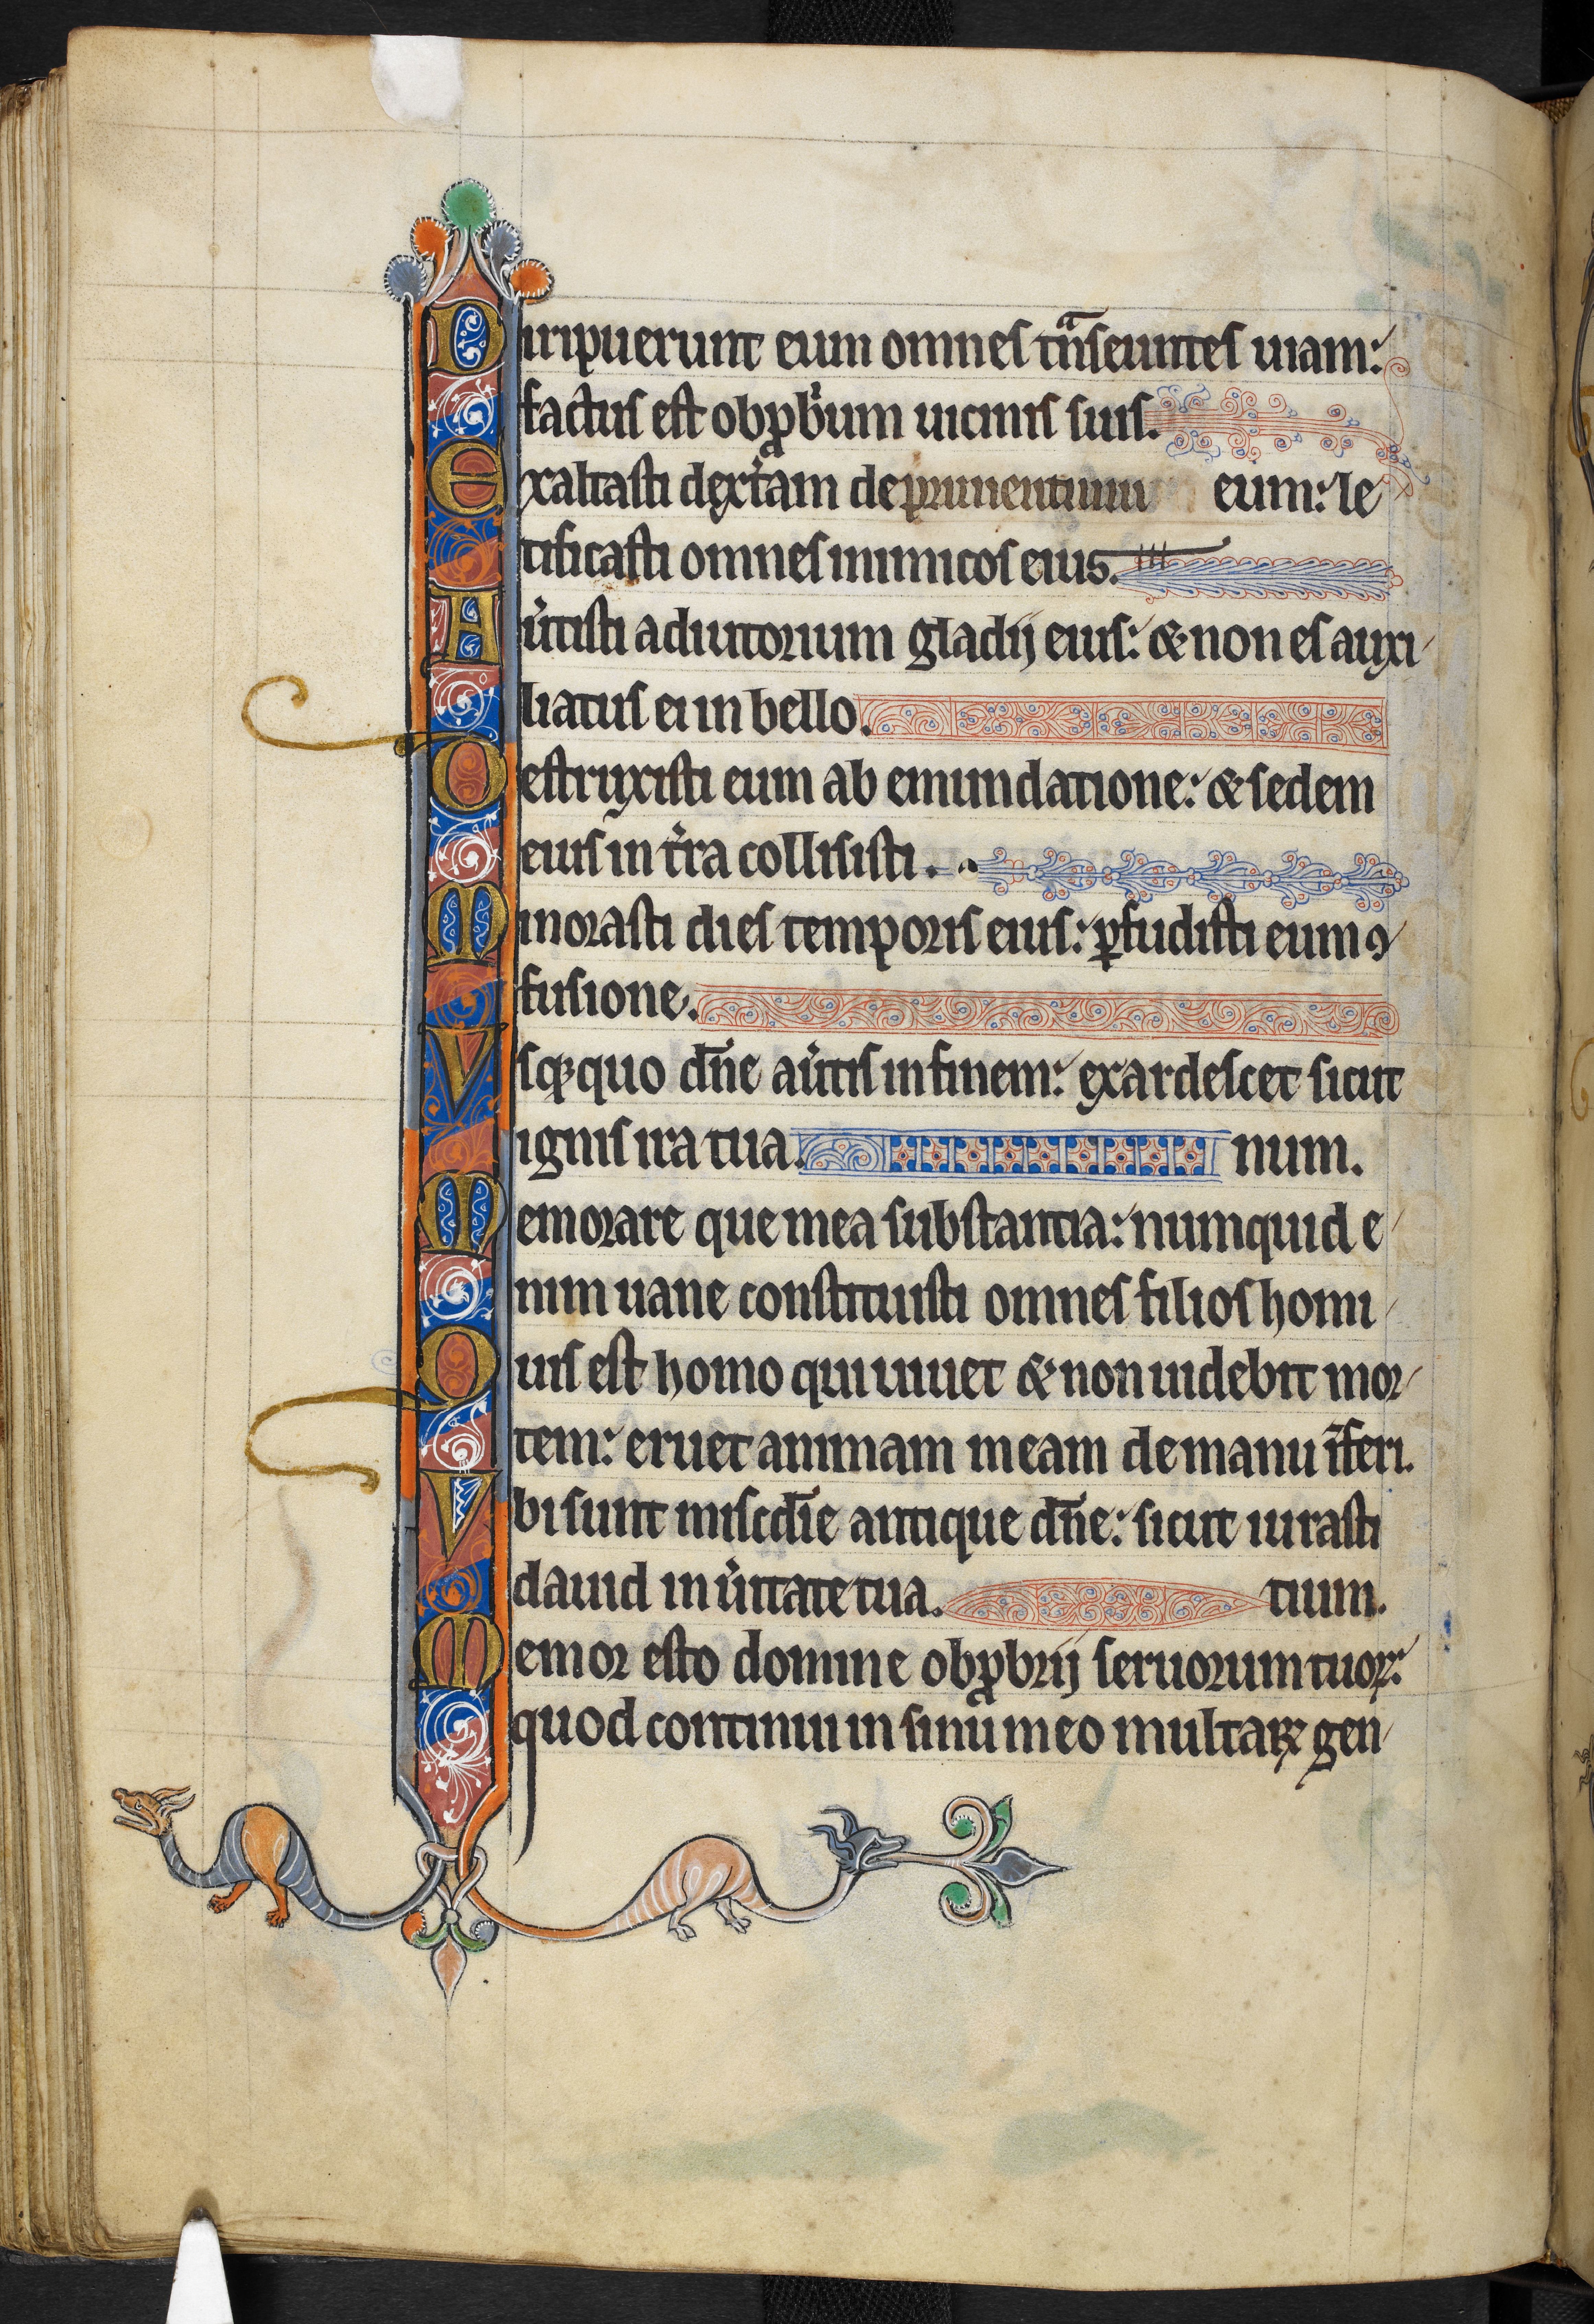 Diripuerunt eum omnes tn̄ᵃseuntes uiam:
factus est obꝓbͥum uicinis suis.
Exaltasti dext̾am deprimentium eum: le
tificasti omnes inimicos eius.
Au̾tisti adiutorium gladij eius: & non es auxi
liatus ei in bello.
Destruxisti eum ab emundatione: & sedem
eius in t̾ra collisisti.
Minorasti dies temporis eius: ꝑfudisti eum ꝯ
fusione.
Vsqꝫquo dn̄e au̾tis in finem: exardescet sicut
ignis ira tua. num.
Memorare que mea substantia: numquid e
nim uane constituisti omnes filios homi
Quis est homo qui uiuet & non uidebit mor
tem: eruet animam meam de manu īferi.
Vbi sunt misćdīe antique dn̄e: sicut iurasti
dauid in u̾itate tua. tium.
Memor esto domine obꝓbrij seruorum tuoꝝ:
quod continui in sinu meo multaꝝ gen